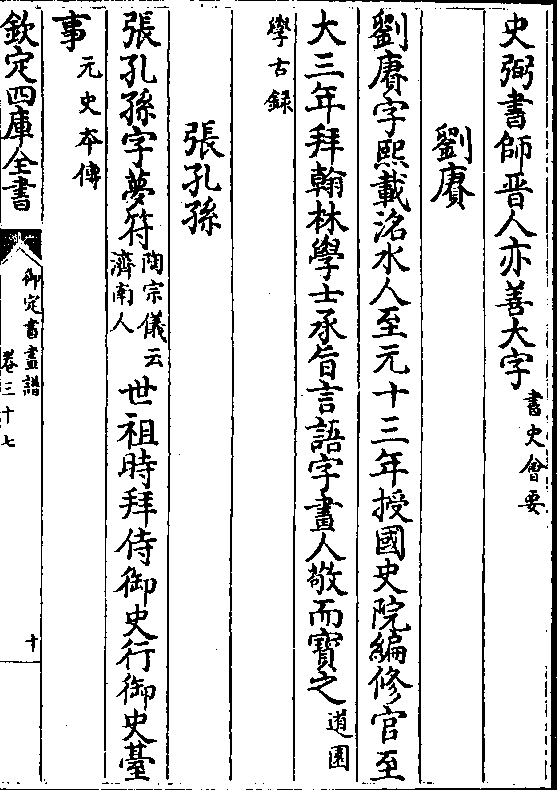 史弼書師晉人亦善大字書史會要
劉賡
劉賡字熙載洺水人至元十三年授國史院編修官至
大三年拜翰林學士承旨言語字畫人敬而寳之道園
學古録
張孔孫
張孔孫字夢符陶宗儀云濟南人世祖時拜侍御史行御史臺
事元史夲傳
欽定四庫全書
御定書畫譜
卷三十七
十